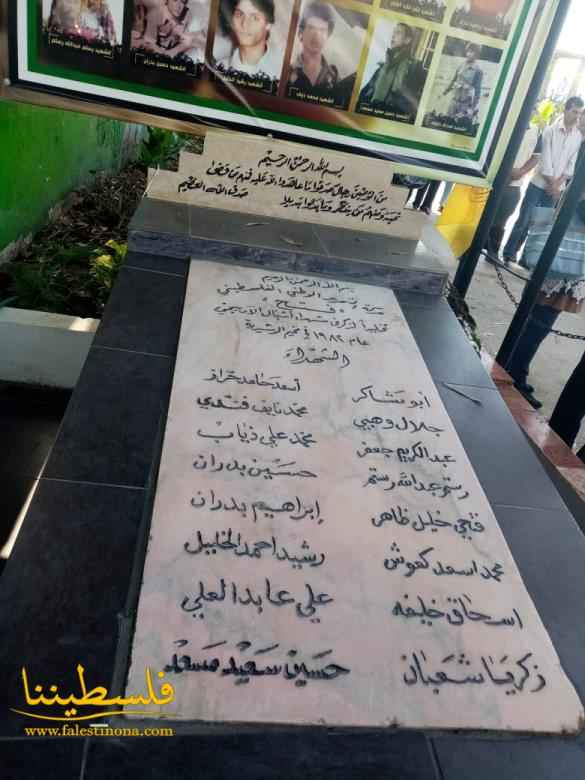 الشهيد حسين بدران
الشهيد محمد ذيب
بسم الله الرحمن الرحيم
من المؤمنين رجال صدقوا ما عاهدوا الله عليه فمنهم من قضى
نحبه ومنهم من ينتظر وما بدلوا تبديلا
صدق الله العظيم
بسم الله الرحمن الرحيم
حركة التحرير الوطني الفلسطيني
"فتح"
تخليداً لذكرى شهداء أشبال الآربيجي
عام ١٩٨٢ في مخيم الرشيدية
الشهداء
ابو شاكر
أسعد حامد خراز
جلال وهبي
محمد نايف قندي
عبد الكريم جعفر
محمد علي ذياب
رستم عبد الله رستم
حسين بدران
فتحي خليل ظاهر
إبراهيم بدران
محمد اسعد كعوش
رشيد احمد الخليل
اسحاق خليفه
علي عابد العلي
زكريا شعبان
حسين سعيد مسعد
فلسطيننا
www.falestinona.com